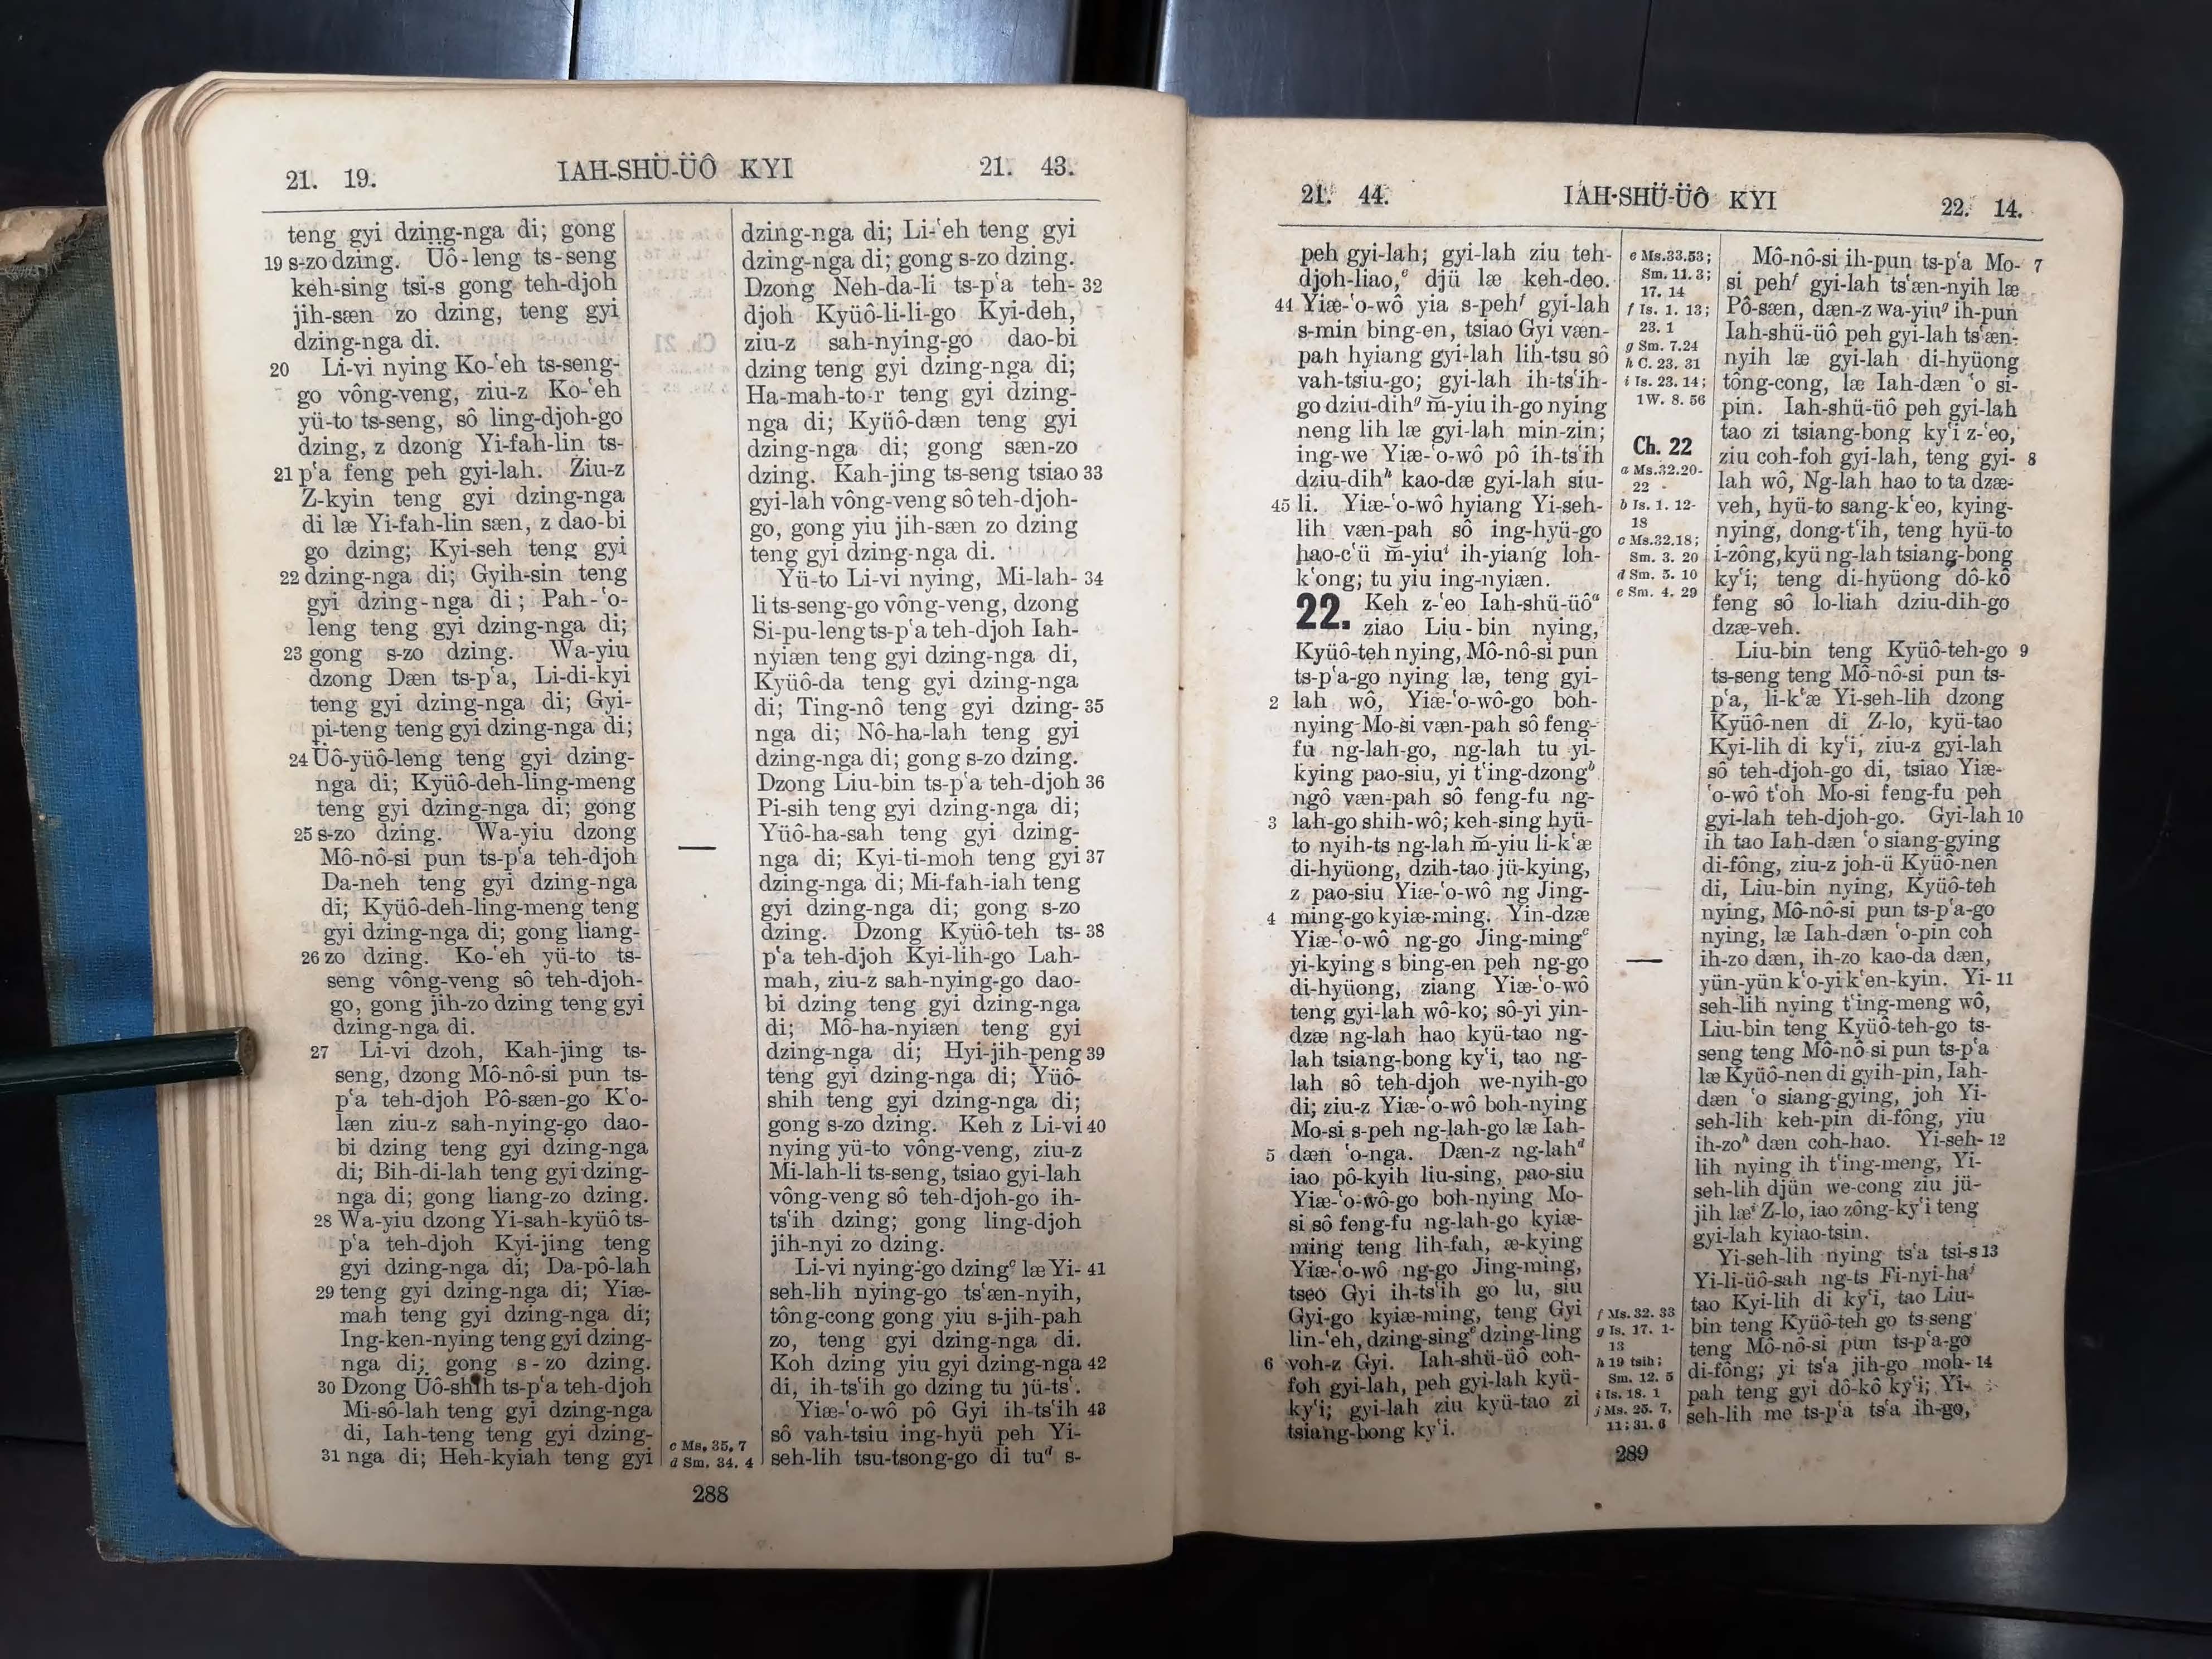 21. 19.
IAH-SHÜ-ÜÔ KYI
21. 43.
teng gyi dzing-nga di; gong
19 s-zo dzing. Üô-leng ts-seng
keh-sing tsi-s gong teh-djoh
jih-sæn zo dzing, teng gyi
dzing-nga di.
20 Li-vi nying Ko-ʻeh ts-seng-
go vông-veng, ziu-z Ko-ʻeh
yü-to ts-seng, sô ling-djoh-go
dzing, z dzong Yi-fah-lin ts-
21 pʻa feng peh gyi-lah. Ziu-z
Z-kyin teng gyi dzing-nga
di læ Yi-fah-lin sæn, z dao-bi
go dzing; Kyi-seh teng gyi
22 dzing-nga di; Gyih-sin teng
gyi dzing-nga di; Pah-ʻo-
leng teng gyi dzing-nga di;
23 gong s-zo dzing. Wa-yiu
dzong Dæn ts-pʻa, Li-di-kyi
teng gyi dzing-nga di; Gyi-
pi-teng teng gyi dzing-nga di;
24 Üô-yüô-leng teng gyi dzing-
nga di; Kyüô-deh-ling-meng
teng gyi dzing-nga di; gong
25 s-zo dzing. Wa-yiu dzong
Mô-nô-si pun ts-pʻa teh-djoh
Da-neh teng gyi dzing-nga
di; Kyüô-deh-ling-meng teng
gyi dzing-nga di; gong liang-
26 zo dzing. Ko-ʻeh yü-to ts-
seng vông-veng sô teh-djoh-
go, gong jih-zo dzing teng gyi
dzing-nga di.
27 Li-vi dzoh, Kah-jing ts-
seng, dzong Mô-nô-si pun ts-
pʻa teh-djoh Pô-sæn-go Kʻo-
læn ziu-z sah-nying-go dao-
bi dzing teng gyi dzing-nga
di; Bih-di-lah teng gyi dzing-
nga di; gong liang-zo dzing.
28 Wa-yiu dzong Yi-sah-kyüô ts-
pʻa teh-djoh Kyi-jing teng
gyi dzing-nga di; Da-pô-lah
29 teng gyi dzing-nga di; Yiæ-
mah teng gyi dzing-nga di;
Ing-ken-nying teng gyi dzing-
nga di; gong s-zo dzing.
30 Dzong Üô-shih ts-pʻa teh-djoh
Mi-sô-lah teng gyi dzing-nga
di, Iah-teng teng gyi dzing-
31 nga di; Heh-kyiah teng gyi
c Ms. 35. 7
d Sm. 34. 4
dzing-nga di; Li-ʻeh teng gyi
dzing-nga di; gong s-zo dzing.
Dzong Neh-da-li ts-pʻa teh- 32
djoh Kyüô-li-li-go Kyi-deh,
ziu-z sah-nying-go dao-bi
dzing teng gyi dzing-nga di;
Ha-mah-to-r teng gyi dzing-
nga di; Kyüô-dæn teng gyi
dzing-nga di; gong sæn-zo
dzing. Kah-jing ts-seng tsiao 33
gyi-lah vông-veng sô teh-djoh-
go, gong yiu jih-sæn zo dzing
teng gyi dzing-nga di.
Yü-to Li-vi nying, Mi-lah- 34
li ts-seng-go vông-veng, dzong
Si-pu-leng ts-pʻa teh-djoh Iah-
nyiæn teng gyi dzing-nga di,
Kyüô-da teng gyi dzing-nga
di; Ting-nô teng gyi dzing- 35
nga di; Nô-ha-lah teng gyi
dzing-nga di; gong s-zo dzing.
Dzong Liu-bin ts-pʻa teh-djoh 36
Pi-sih teng gyi dzing-nga di;
Yüô-ha-sah teng gyi dzing-
nga di; Kyi-ti-moh teng gyi 37
dzing-nga di; Mi-fah-iah teng
gyi dzing-nga di; gong s-zo
dzing. Dzong Kyüô-teh ts- 38
pʻa teh-djoh Kyi-lih-go Lah-
mah, ziu-z sah-nying-go dao-
bi dzing teng gyi dzing-nga
di; Mô-ha-nyiæn teng gyi
dzing-nga di; Hyi-jih-peng 39
teng gyi dzing-nga di; Yüô-
shih teng gyi dzing-nga di;
gong s-zo dzing. Keh z Li-vi 40
nying yü-to vông-veng, ziu-z
Mi-lah-li ts-seng, tsiao gyi-lah
vông-veng sô teh-djoh-go ih-
tsʻih dzing; gong ling-djoh
jih-nyi zo dzing.
Li-vi nying-go dzingᶜ læ Yi- 41
seh-lih nying-go tsʻæn-nyih,
tông-cong gong yiu s-jih-pah
zo, teng gyi dzing-nga di.
Koh dzing yiu gyi dzing-nga 42
di, ih-tsʻih go dzing tu jü-tsʻ.
Yiæ-ʻo-wô pô Gyi ih-tsʻih 43
sô vah-tsiu ing-hyü peh Yi-
seh-lih tsu-tsong-go di tuᵈ s-
288
21. 44.
IAH-SHÜ-ÜÔ KYI
22. 14.
peh gyi-lah; gyi-lah ziu teh-
djoh-liao,ᵉ djü læ keh-deo.
44 Yiæ-ʻo-wô yia s-pehᶠ gyi-lah
s-min bing-en, tsiao Gyi væn-
pah hyiang gyi-lah lih-tsu sô
vah-tsiu-go; gyi-lah ih-tsʻih-
go dziu-dihᵍ m̆-yiu ih-go nying
neng lih læ gyi-lah min-zin;
ing-we Yiæ-ʻo-wô pô ih-tsʻih
dziu-dihʰ kao-dæ gyi-lah siu-
45 li. Yiæ-ʻo-wô hyiang Yi-seh-
lih væn-pah sô ing-hyü-go
hao-cʻü m̆-yiuⁱ ih-yiang loh-
kʻong; tu yiu ing-nyiæn.
22. Keh z-ʻeo Iah-shü-üôᵃ
ziao Liu-bin nying,
Kyüô-teh nying, Mô-nô-si pun
ts-pʻa-go nying læ, teng gyi-
2 lah wô, Yiæ-ʻo-wô-go boh-
nying Mo-si væn-pah sô feng-
fu ng-lah-go, ng-lah tu yi-
kying pao-siu, yi tʻing-dzongᵇ
ngô væn-pah sô feng-fu ng-
3 lah-go shih-wô; keh-sing hyü-
to nyih-ts ng-lah m̆-yiu li-kʻæ
di-hyüong, dzih-tao jü-kying,
z pao-siu Yiæ-ʻo-wô ng Jing-
4 ming-go kyiæ-ming. Yin-dzæ
Yiæ-ʻo-wô ng-go Jing-mingᶜ
yi-kying s bing-en peh ng-go
di-hyüong, ziang Yiæ-ʻo-wô
teng gyi-lah wô-ko; sô-yi yin-
dzæ ng-lah hao kyü-tao ng-
lah tsiang-bong kyʻi, tao ng-
lah sô teh-djoh we-nyih-go
di; ziu-z Yiæ-ʻo-wô boh-nying
Mo-si s-peh ng-lah-go læ Iah-
5 dæn ʻo-nga. Dæn-z ng-lahᵈ
iao pô-kyih liu-sing, pao-siu
Yiæ-ʻo-wô-go boh-nying Mo-
si sô feng-fu ng-lah-go kyiæ-
ming teng lih-fah, æ-kying
Yiæ-ʻo-wô ng-go Jing-ming,
tseo Gyi ih-tsʻih go lu, siu
Gyi-go kyiæ-ming, teng Gyi
lin-ʻeh, dzing-singᵉ dzing-ling
6 voh-z Gyi. Iah-shü-üô coh-
foh gyi-lah, peh gyi-lah kyü-
kyʻi; gyi-lah ziu kyü-tao zi
tsiang-bong kyʻi.
e Ms.33.53;
Sm. 11. 3;
17. 14
f Is. 1. 13;
23. 1
g Sm. 7.24
h C. 23. 31
i Is. 23. 14;
1W. 8. 56
Ch. 22
a Ms.32.20-
22
b Is. 1. 12-
18
c Ms.32.18;
Sm. 3. 20
d Sm. 5. 10
e Sm. 4. 29
f Ms. 32. 33
g Is. 17. 1-
13
h 19 tsih;
Sm. 12. 5
i Is. 18. 1
j Ms. 25. 7,
11; 31. 6
Mô-nô-si ih-pun ts-pʻa Mo- 7
si pehᶠ gyi-lah tsʻæn-nyih læ
Pô-sæn, dæn-z wa-yiuᵍ ih-pun
Iah-shü-üô peh gyi-lah tsʻæn-
nyih læ gyi-lah di-hyüong
tông-cong, læ Iah-dæn ʻo si-
pin. Iah-shü-üô peh gyi-lah
tao zi tsiang-bong kyʻi z-ʻeo,
ziu coh-foh gyi-lah, teng gyi- 8
lah wô, Ng-lah hao to ta dzæ-
veh, hyü-to sang-kʻeo, kying-
nying, dong-tʻih, teng hyü-to
i-zông, kyü ng-lah tsiang-bong
kyʻi; teng di-hyüong dô-kô
feng sô lo-liah dziu-dih-go
dzæ-veh.
Liu-bin teng Kyüô-teh-go 9
ts-seng teng Mô-nô-si pun ts-
pʻa, li-kʻæ Yi-seh-lih dzong
Kyüô-nen di Z-lo, kyü-tao
Kyi-lih di kyʻi, ziu-z gyi-lah
sô teh-djoh-go di, tsiao Yiæ-
ʻo-wô tʻoh Mo-si feng-fu peh
gyi-lah teh-djoh-go. Gyi-lah 10
ih tao Iah-dæn ʻo siang-gying
di-fông, ziu-z joh-ü Kyüô-nen
di, Liu-bin nying, Kyüô-teh
nying, Mô-nô-si pun ts-pʻa-go
nying, læ Iah-dæn ʻo-pin coh
ih-zo dæn, ih-zo kao-da dæn,
yün-yün kʻo-yi kʻen-kyin. Yi- 11
seh-lih nying tʻing-meng wô,
Liu-bin teng Kyüô-teh-go ts-
seng teng Mô-nô-si pun ts-pʻa
læ Kyüô-nen di gyih-pin, Iah-
dæn ʻo siang-gying, joh Yi-
seh-lih keh-pin di-fông, yiu
ih-zoʰ dæn coh-hao. Yi-seh- 12
lih nying ih tʻing-meng, Yi-
seh-lih djün we-cong ziu jü-
jih læⁱ Z-lo, iao zông-kyʻi teng
gyi-lah kyiao-tsin.
Yi-seh-lih nying tsʻa tsi-s 13
Yi-li-üô-sah ng-ts Fi-nyi-haʲ
tao Kyi-lih di kyʻi, tao Liu-
bin teng Kyüô-teh go ts-seng
teng Mô-nô-si pun ts-pʻa-go
di-fông; yi tsʻa jih-go moh- 14
pah teng gyi dô-kô kyʻi; Yi-
seh-lih me ts-pʻa tsʻa ih-go,
289